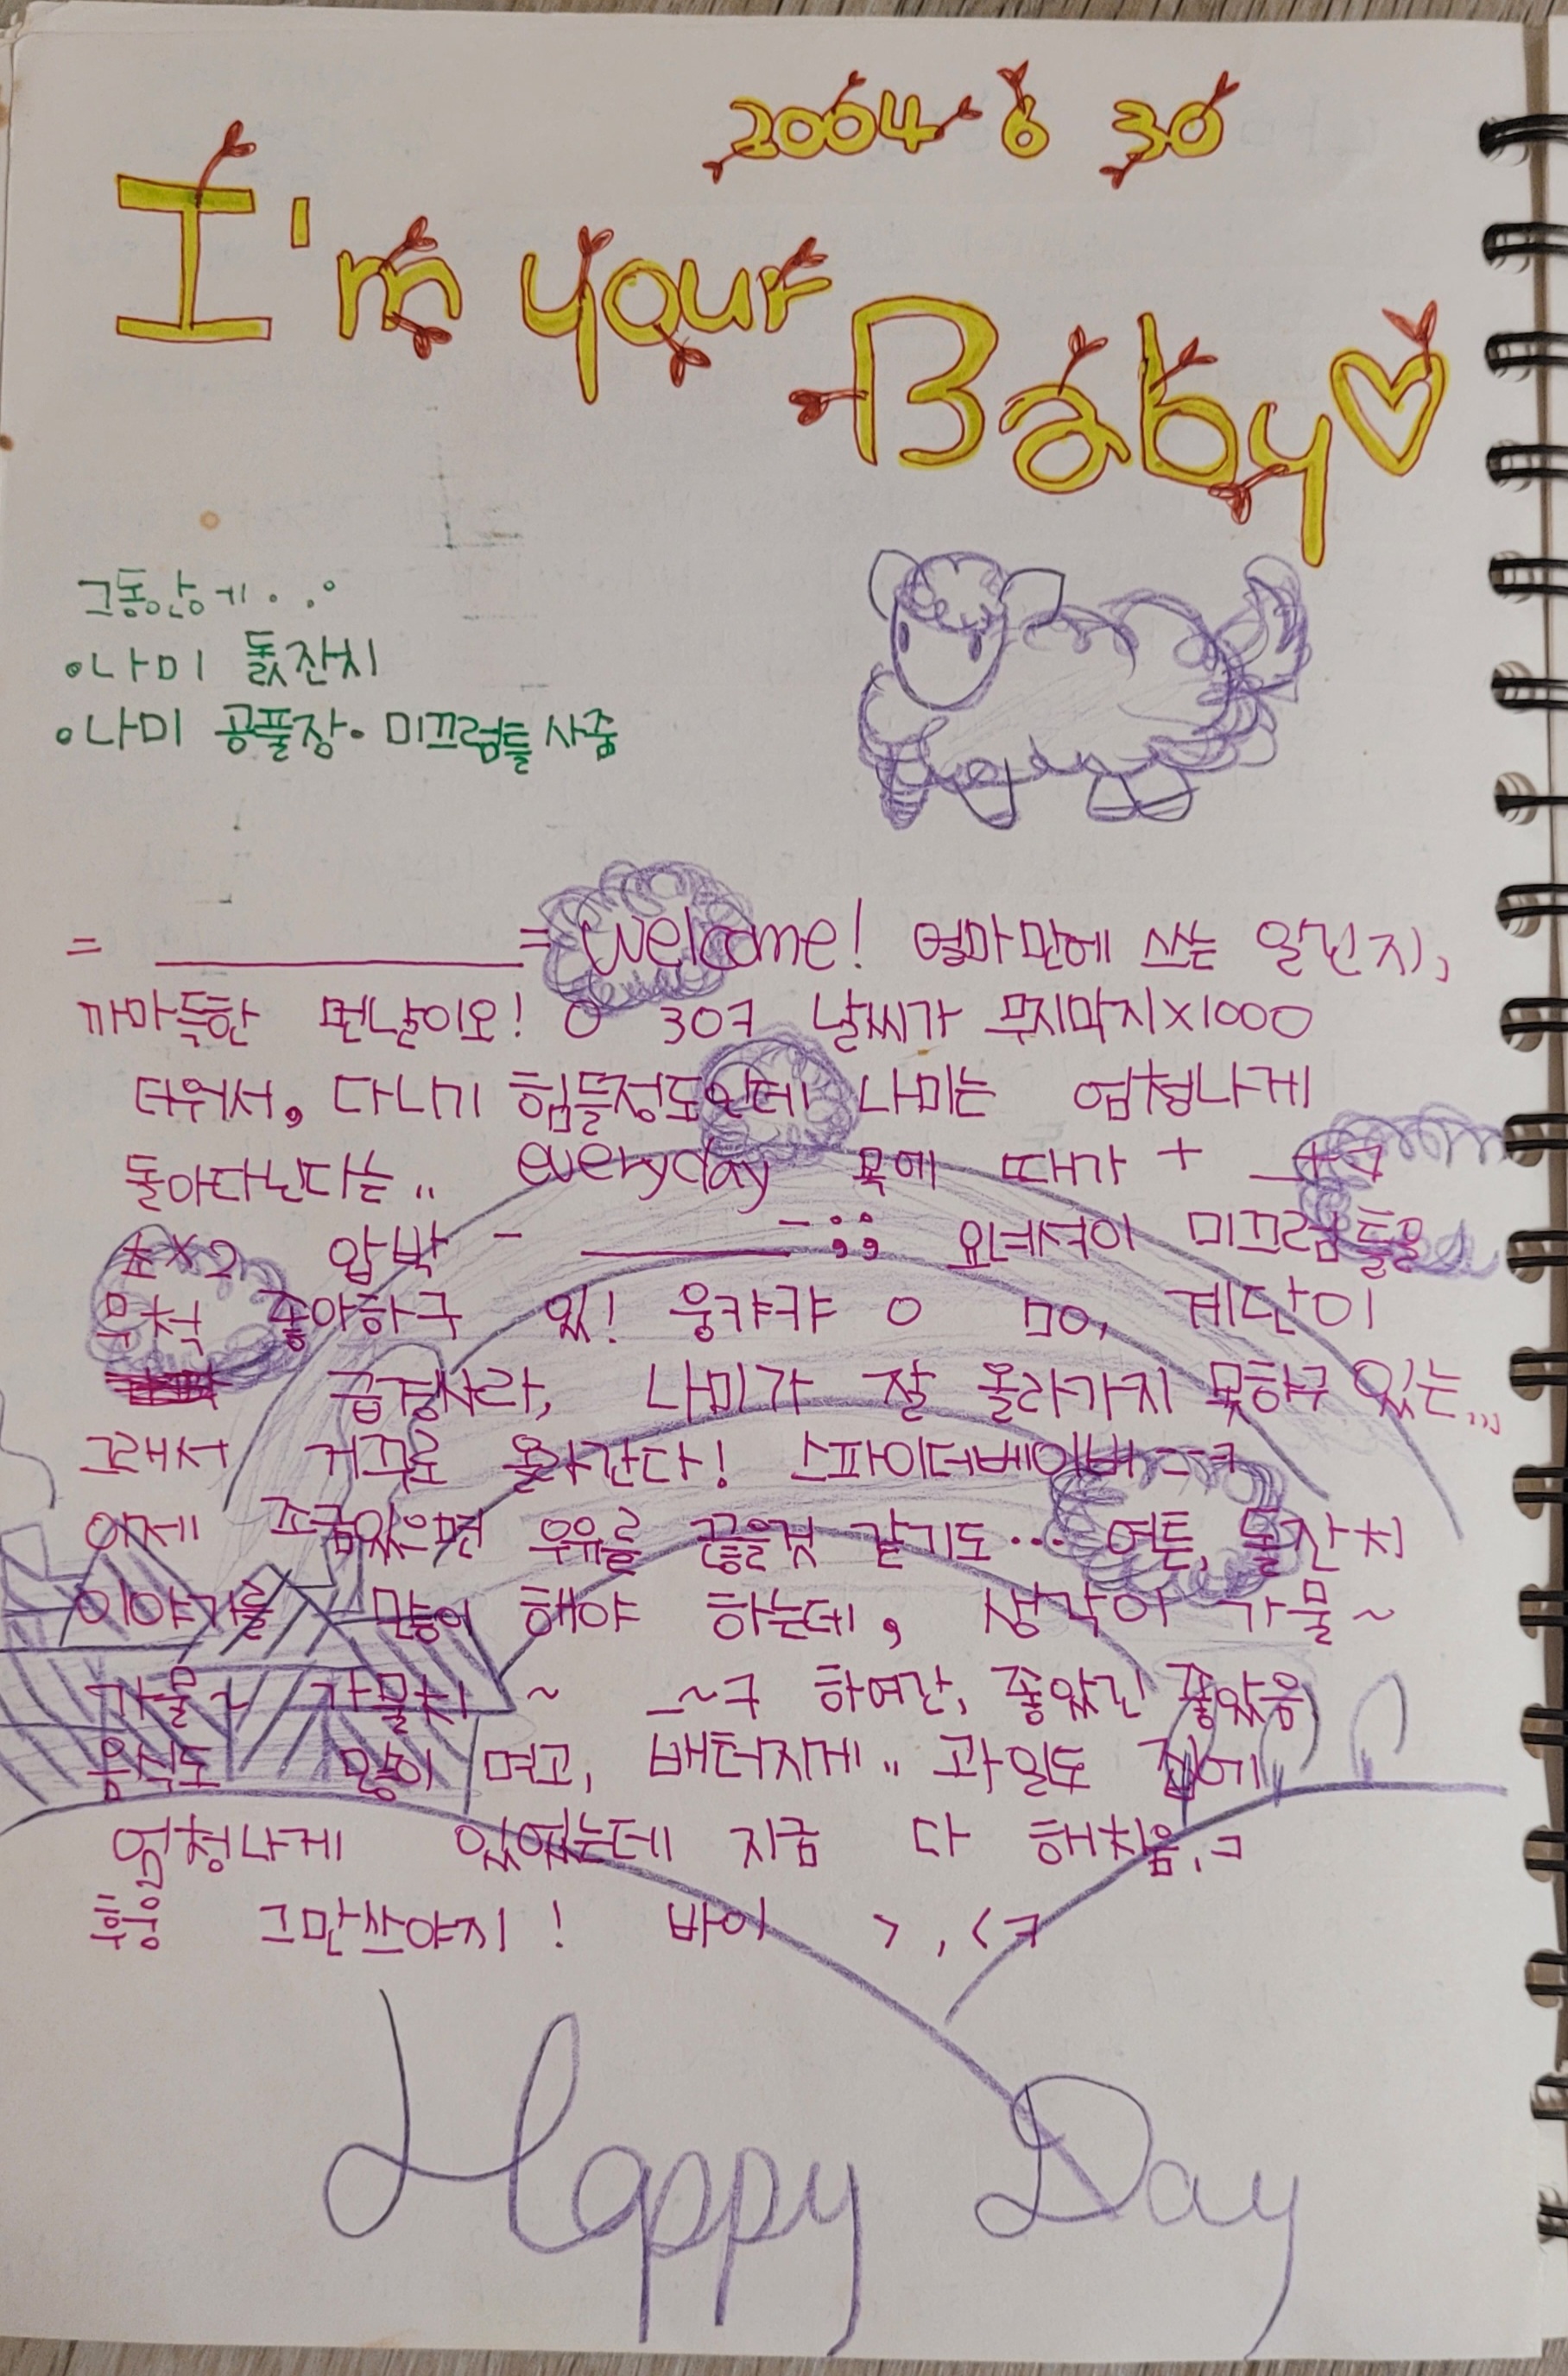 2004 6 30
I'm your
Baby♡
그동안에...
•나미 돐잔치
•나미 공풀장• 미끄럼틀 사줌
= ________= welcome! 얼마만에 쓰는 일긴지,
까마득한 먼날이오! ㅇ ㅋ 날씨가 무지막지×1000
더워서, 다니기 힘들정도인데 나미는 엄청나게
돌아다닌다는.. everyday 목에 때가 + _+ㅋ
초×2 압박 - ______-;; 요녀석이 미끄럼틀을
무척 좋아하구 있! 웅캬캬 ㅇ ㅁㅇ, 계단이
급경사라, 나미가 잘 올라가지 못하구 있는...
그래서 거꾸로 올라간다! 스파이더베이버--ㅋ
이제 조금있으면 우유를 끊을것 같기도... 여튼, 돌잔치
이야기를 많이 해야 하는데, 생각이 가물~
가물~ 가물치 ~ _~ㅋ 하여간, 좋았긴 좋았음
음식도 많이 먹고, 배터지게.. 과일도 집에
엄청나게 있었는데 지금 다 해치움.ㅋ
훙 그만쓰야지! 바이 >,<ㅋ
Happy Day